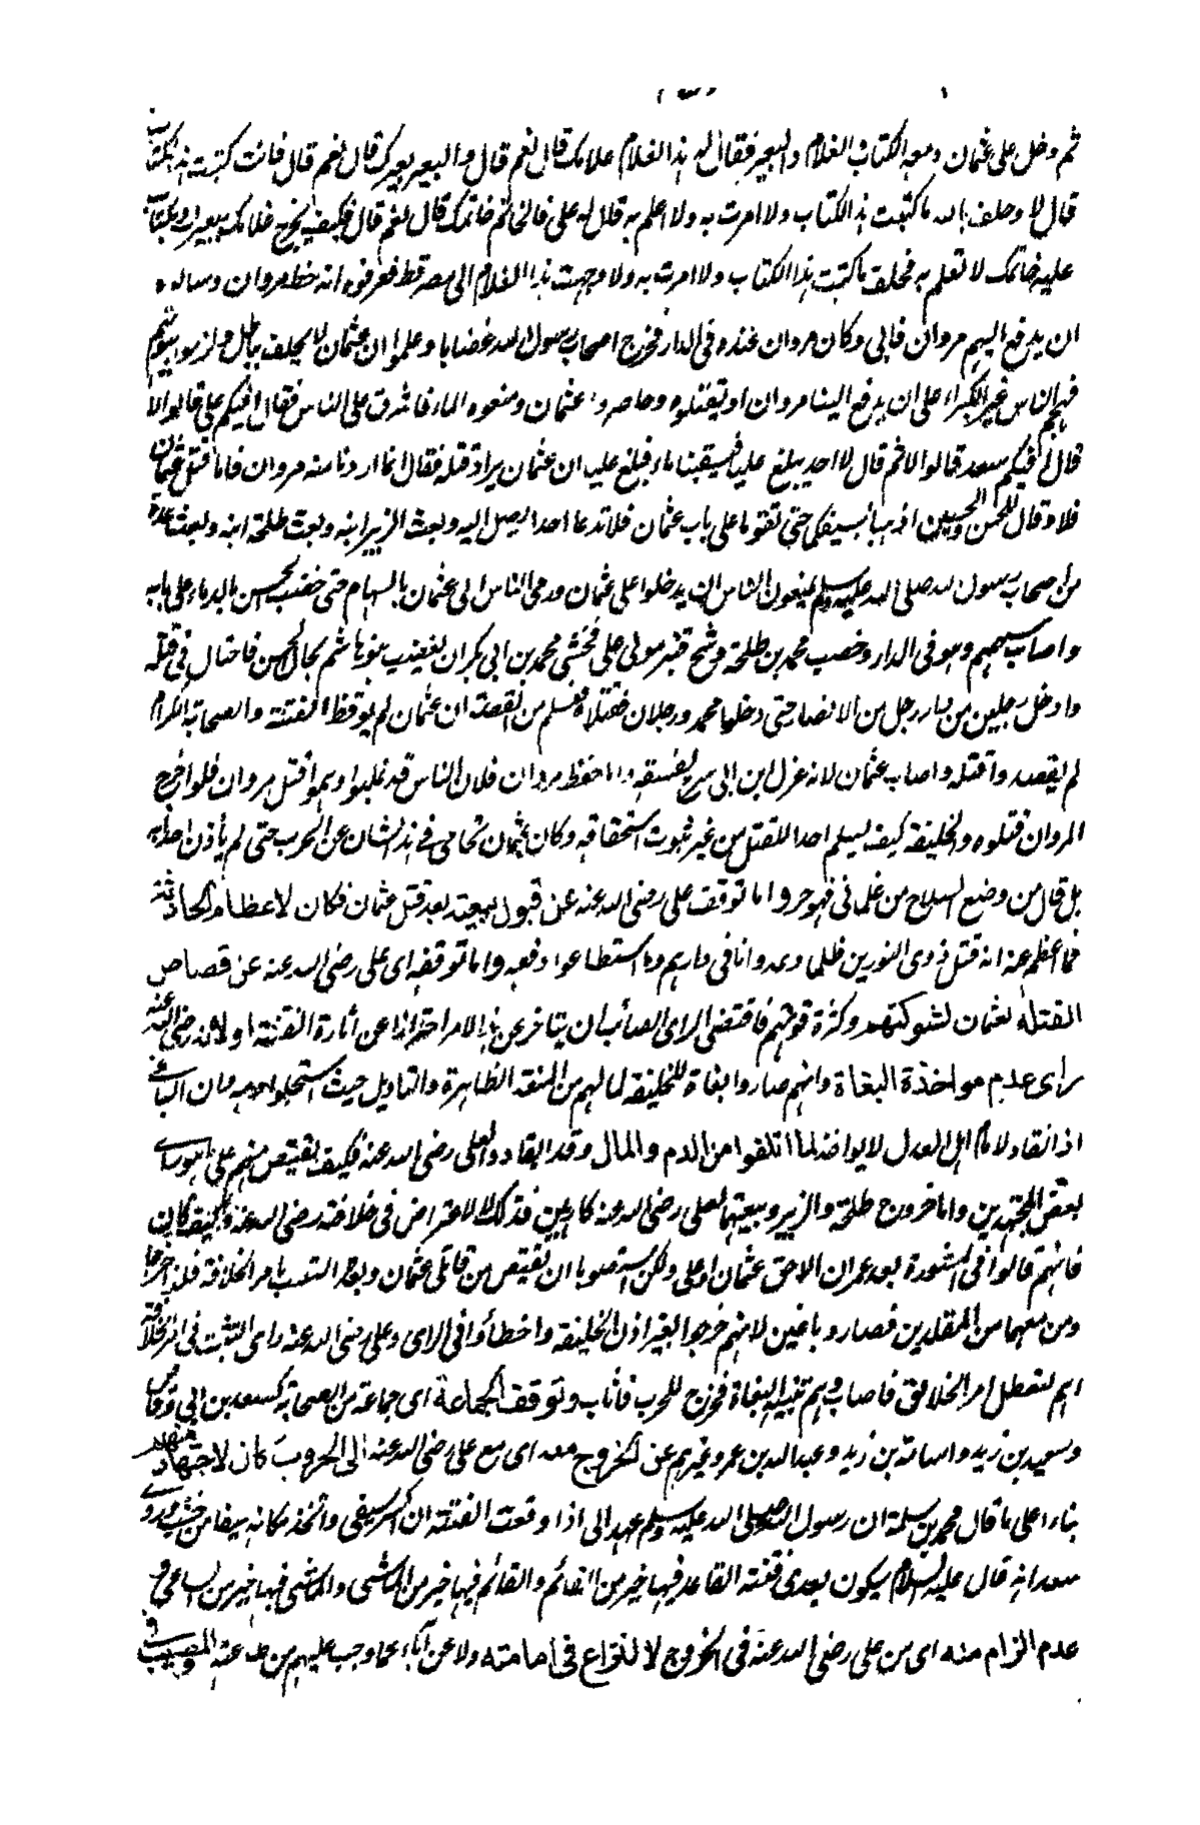 ثم دخل على عثمان ومعه الكتاب والغلام والبعير فقال له هذا الغلام غلامك قال نعم قال والبعير بعيرك قال نعم قال فانت كتبت هذا الكتاب
قال لا وحلف بالله ما كتبت هذا الكتاب ولا امرت به ولا اعلم به قال له علي فالخاتم خاتمك قال نعم قال فكيف يخرج غلامك ببعيرك وبكتاب
عليه خاتمك لا تعلم به فحلف ما كتبت هذا الكتاب ولا امرت به ولا وجهت هذا الغلام الى مصر قط فعرفوه انه خط مروان وسالوه
ان يدفع اليهم مروان فابى وكان مروان عنده في الدار فخرج اصحاب رسول الله غضابا وعلموا ان عثمان لا يحلف بباطل ولزموا بيوتهم
فهجم الناس غير الكبراء على ان يدفع الينا مروان او تقتلوه وحاصروا عثمان ومنعوه الماء فاشرف على الناس فقال افيكم علي قالوا لا
قال افيكم سعد قالوا لا ثم قال لا احد يبلغ عليا فيسقينا ماء فبلغ عليا ان عثمان يراد قتله فقال انما اردنا منه مروان فاما قتل عثمان
فلا وقال للحسن والحسين اذهبا بسيفكما حتى تقوما على باب عثمان فلا تدعا احدا يصل اليه وبعث الزبير ابنه وبعث طلحة ابنه وبعث عدة
من اصحاب رسول الله صلى الله عليه وسلم يمنعون الناس ان يدخلوا على عثمان ورمى الناس الى عثمان بالسهام حتى خضب الحسن بالدماء على بابه
واصاب سهم وهو في الدار وخضب محمد بن طلحة وشج قنبر مولى علي فخشي محمد بن ابي بكر ان يغضب بنو هاشم بحال الحسن فاحتال في قتله
وادخل رجلين من دار رجل من الانصار حتى دخلها محمد ورجلان فقتلاه فعلم من القصة ان عثمان لم يوقظ الفتنة والصحابة الكرام
لم يقصدوا قتله واصاب عثمان لانه عزل ابن ابي سرح لفسقه واما حفظ مروان فلان الناس قد غلبوا وهموا قتل مروان فلو اخرج
المروان قتلوه والخليفة كيف يسلم احدا للقتل من غير ثبوت استحقاقه وكان عثمان تحامى في هذا الشان عن الحرب حتى لم يأذن احدا به
بل قال من وضع السلاح من غلماني فهو حر واما توقف علي رضي الله عنه عن قبول بيعته بعد قتل عثمان فكان لاعظام الحادثة
فما اعظم عنه انه قتل ذوى النورين ظلما وعدوانا في دارهم وما استطاعوا دفعه واما توقفه اى علي رضي الله عنه عن قصاص
القتلة لعثمان لشوكتهم وكثرة قوتهم فاقتضى الراى الصائب ان يتاخر عن هذا الامر احترازا عن اثارة الفتنة او لانه رضي الله عنه
راى عدم مواخذة البغاة وانهم صاروا بغاة للخليفة لما لهم من المنعة الظاهرة والتاويل حيث استحلوا دمه فان الباغي
اذا انقاد لامام اهل العدل لا يواخذ لما اتلفوا من الدم والمال وقد انقادوا لعلي رضي الله عنه فكيف يقتص منهم على ما هو راى
بعض المجتهدين واما خروج طلحة والزبير وبيعتهما لعلي رضي الله عنه كارهين فذلك لا لاعتراض في خلافته رضي الله عنه وكيف كان
فانهم قالوا في الشورة بعد عمر ان الاحق عثمان او علي ولكن استصوبا ان يقتص من قاتلي عثمان وبعد التعب بامر الخلافة فلذا خرجا
ومن معهما من المقلدين فصاروا باغين لانهم خرجوا بغير اذن الخليفة واخطأوا في الراى وعلي رضي الله عنه راى التثبت في امر الخلافة
اهم لتعطل امر الخلائق فاصاب وهم تنبيه البغاة فخرج للحرب فأثاب وتوقف الجماعة اى جماعة من الصحابة كسعد بن ابي وقاص
وسعيد بن زيد واسامة بن زيد وعبد الله بن عمر وغيرهم عن الخروج معه اى مع علي رضي الله عنه الى الحروب كان لاجتهاد منهم
بناء على ما قال محمد بن سلمة ان رسول الله صلى الله عليه وسلم عهد الى اذا وقعت الفتنة ان اكسر سيفي واتخذ مكانه سيفا من خشب وروى
سعد انه قال عليه السلام سيكون بعدى فتنة القاعد فيها خير من القائم والقائم فيها خير من الماشى والماشى فيها خير من الساعي و
عدم الزام منه اى من علي رضي الله عنه في الخروج لا لنزاع في امامته ولا عن آباء عما وجب عليهم من طاعته والمصيب في